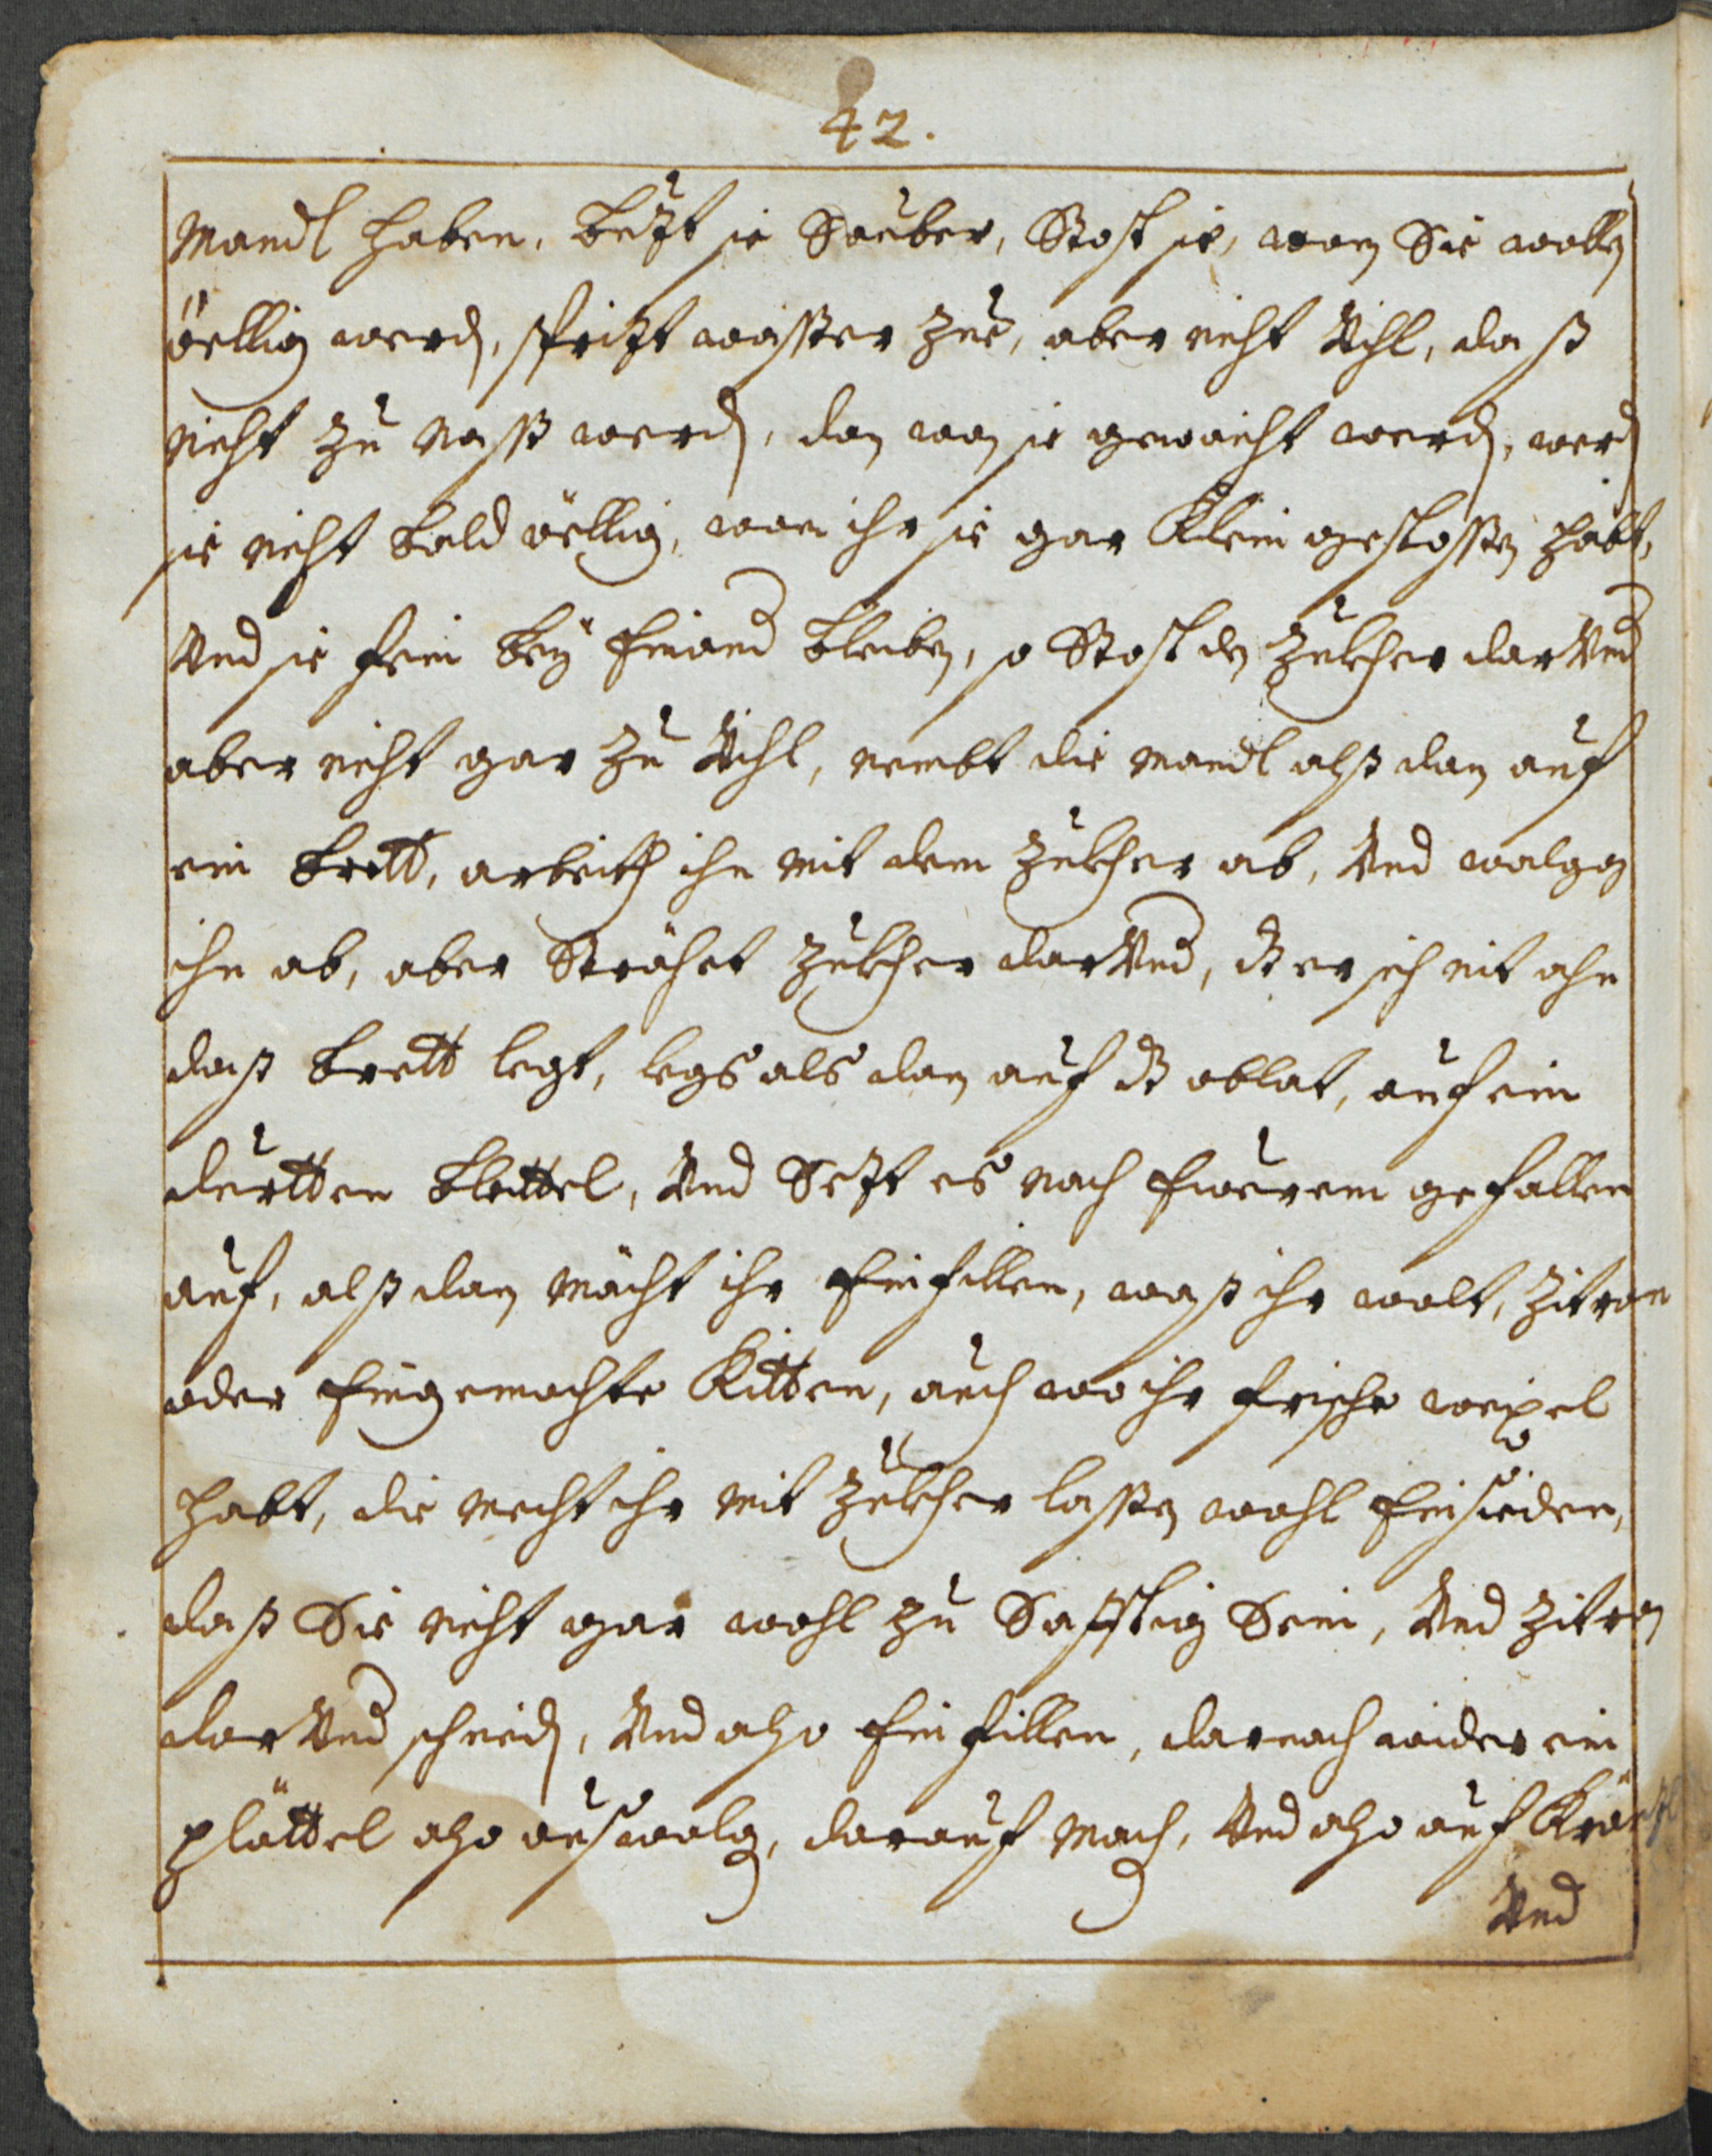 42.
Mandl haben, butzt sie Sauber, Stost sie, wan Sie wollen
öellig werden, spritzt wasser zue, aber nicht Vihl, daß
nicht zu Naß werden, dan wan sie gewaicht werden, werden
sie nicht bald öellig, wan ihr sie gar Klein gestossen habt,
Vnd sie fein beÿ Einand bleiben, so Stost den Zukher darVnd
aber nicht gar zu Vihl, nembt die Mandl alß dan auf
ein brett, arbeith ihn mit dem Zukher ab, Vnd walgen
ihn ab, aber Strähet Zukher darVnd, dz er sich nit ahn
daß brett legt, legs als dan auf dz oblat, auf ein
durtten blettel, Vnd Setzt es nach Eurem gefallen
auf, alß dan mächt ihr Einfillen, waß ihr wolt, Zitron
oder Eingemachte Kitten, auch wo ihr frische weixel
habt, die mecht ihr mit Zukher lassen wohl Einsieden,
daß Sie nicht gar wohl zu Safftig Sein, Vnd Zitron
darVnd schneiden, Vnd also Einfillen, darnach wider ein
plättel also auswalg, darauf mach, Vnd also auf
Vnd